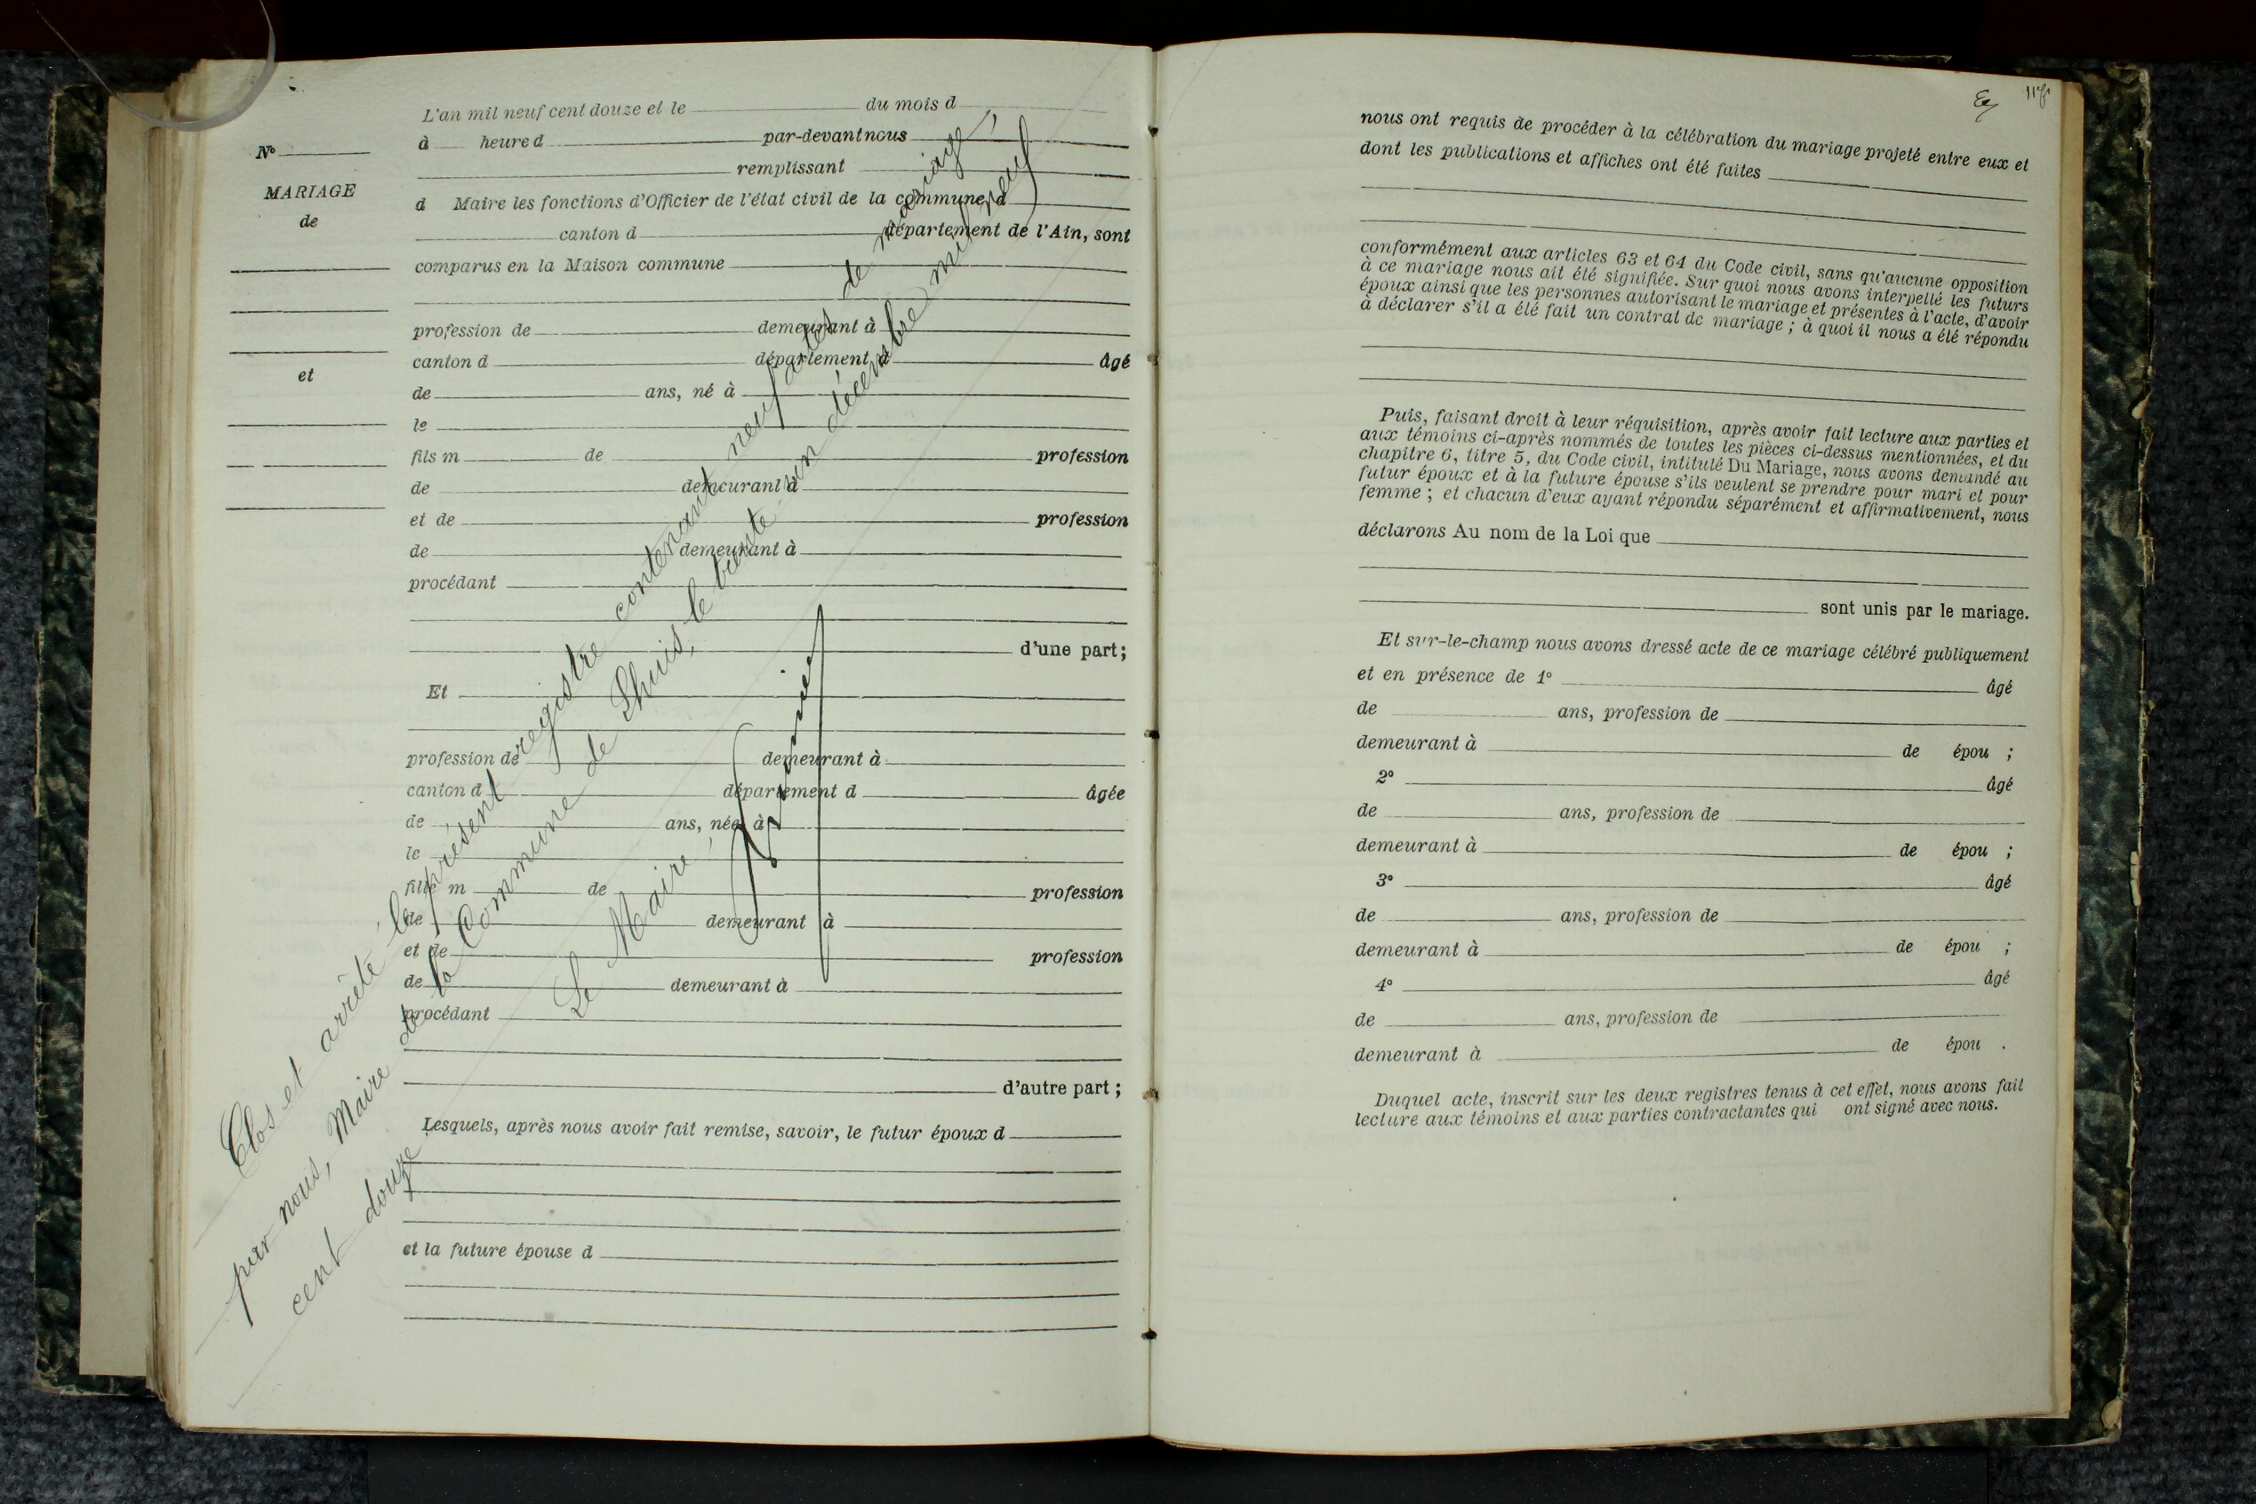 N°
MARIAGE
de
et
L'an mil neuf cent douze et le du mois d
à heure d par-devant nous
remplissant
d Maire les fonctions d'Officier de l'état civil de la commune d
canton d département de l'Ain, sont
comparus en la Maison commune
profession de demeurant à
canton d département d âgé
de ans, né à
le
fils m de profession
de demeurant à
et de profession
de demeurant à
procédant
d'une part;
Et
profession de demeurant à
canton d département d âgée
de ans, née à
le
fille m de profession
de demeurant à
et de profession
de demeurant à
procédant
d'autre part;
Lesquels, après nous avoir fait remise, savoir, le futur époux d
et la future épouse d
Clos et arrêté le présent registre contenant neuf actes de mariage,
par nous, Maire de la Commune de Lhuis, le trente-un décembre mil neuf
cent douze
Le Maire
nous ont requis de procéder à la célébration du mariage projeté entre eux et
dont les publications et affiches ont été faites
conformément aux articles 63 et 64 du Code civil, sans qu'aucune opposition
à ce mariage nous ait été signifiée. Sur quoi nous avons interpellé les futurs
époux ainsi que les personnes autorisant le mariage et présentes à l'acte, d'avoir
à déclarer s'il a été fait un contrat de mariage; à quoi il nous a été répondu
Puis, faisant droit à leur réquisition, après avoir fait lecture aux parties et
aux témoins ci-après nommés de toutes les pièces ci-dessus mentionnées, et du
chapitre 6, titre 5, du Code civil, intitulé Du Mariage, nous avons demandé au
futur époux et à la future épouse s'ils veulent se prendre pour mari et pour
femme; et chacun d'eux ayant répondu séparément et affirmativement, nous
déclarons Au nom de la Loi que
sont unis par le mariage.
Et sur-le-champ nous avons dressé acte de ce mariage célébré publiquement
et en présence de 1° âgé
de ans, profession de
demeurant à de épou ;
2° âgé
de ans, profession de
demeurant à de épou ;
3° âgé
de ans, profession de
demeurant à de épou ;
4° âgé
de ans, profession de
demeurant à de épou .
Duquel acte, inscrit sur les deux registres tenus à cet effet, nous avons fait
lecture aux témoins et aux parties contractantes qui ont signé avec nous.